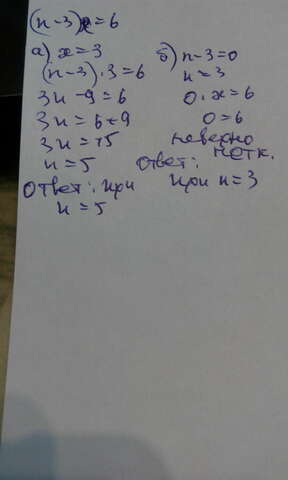 (n-3)x=6
а) x=3
(n-3)·3=6
3n-9=6
3n=6+9
3n=15
n=5
Ответ: при
n=5
б) n-3=0
n=3
0·x=6
0=6
неверно
Ответ:
при n=3